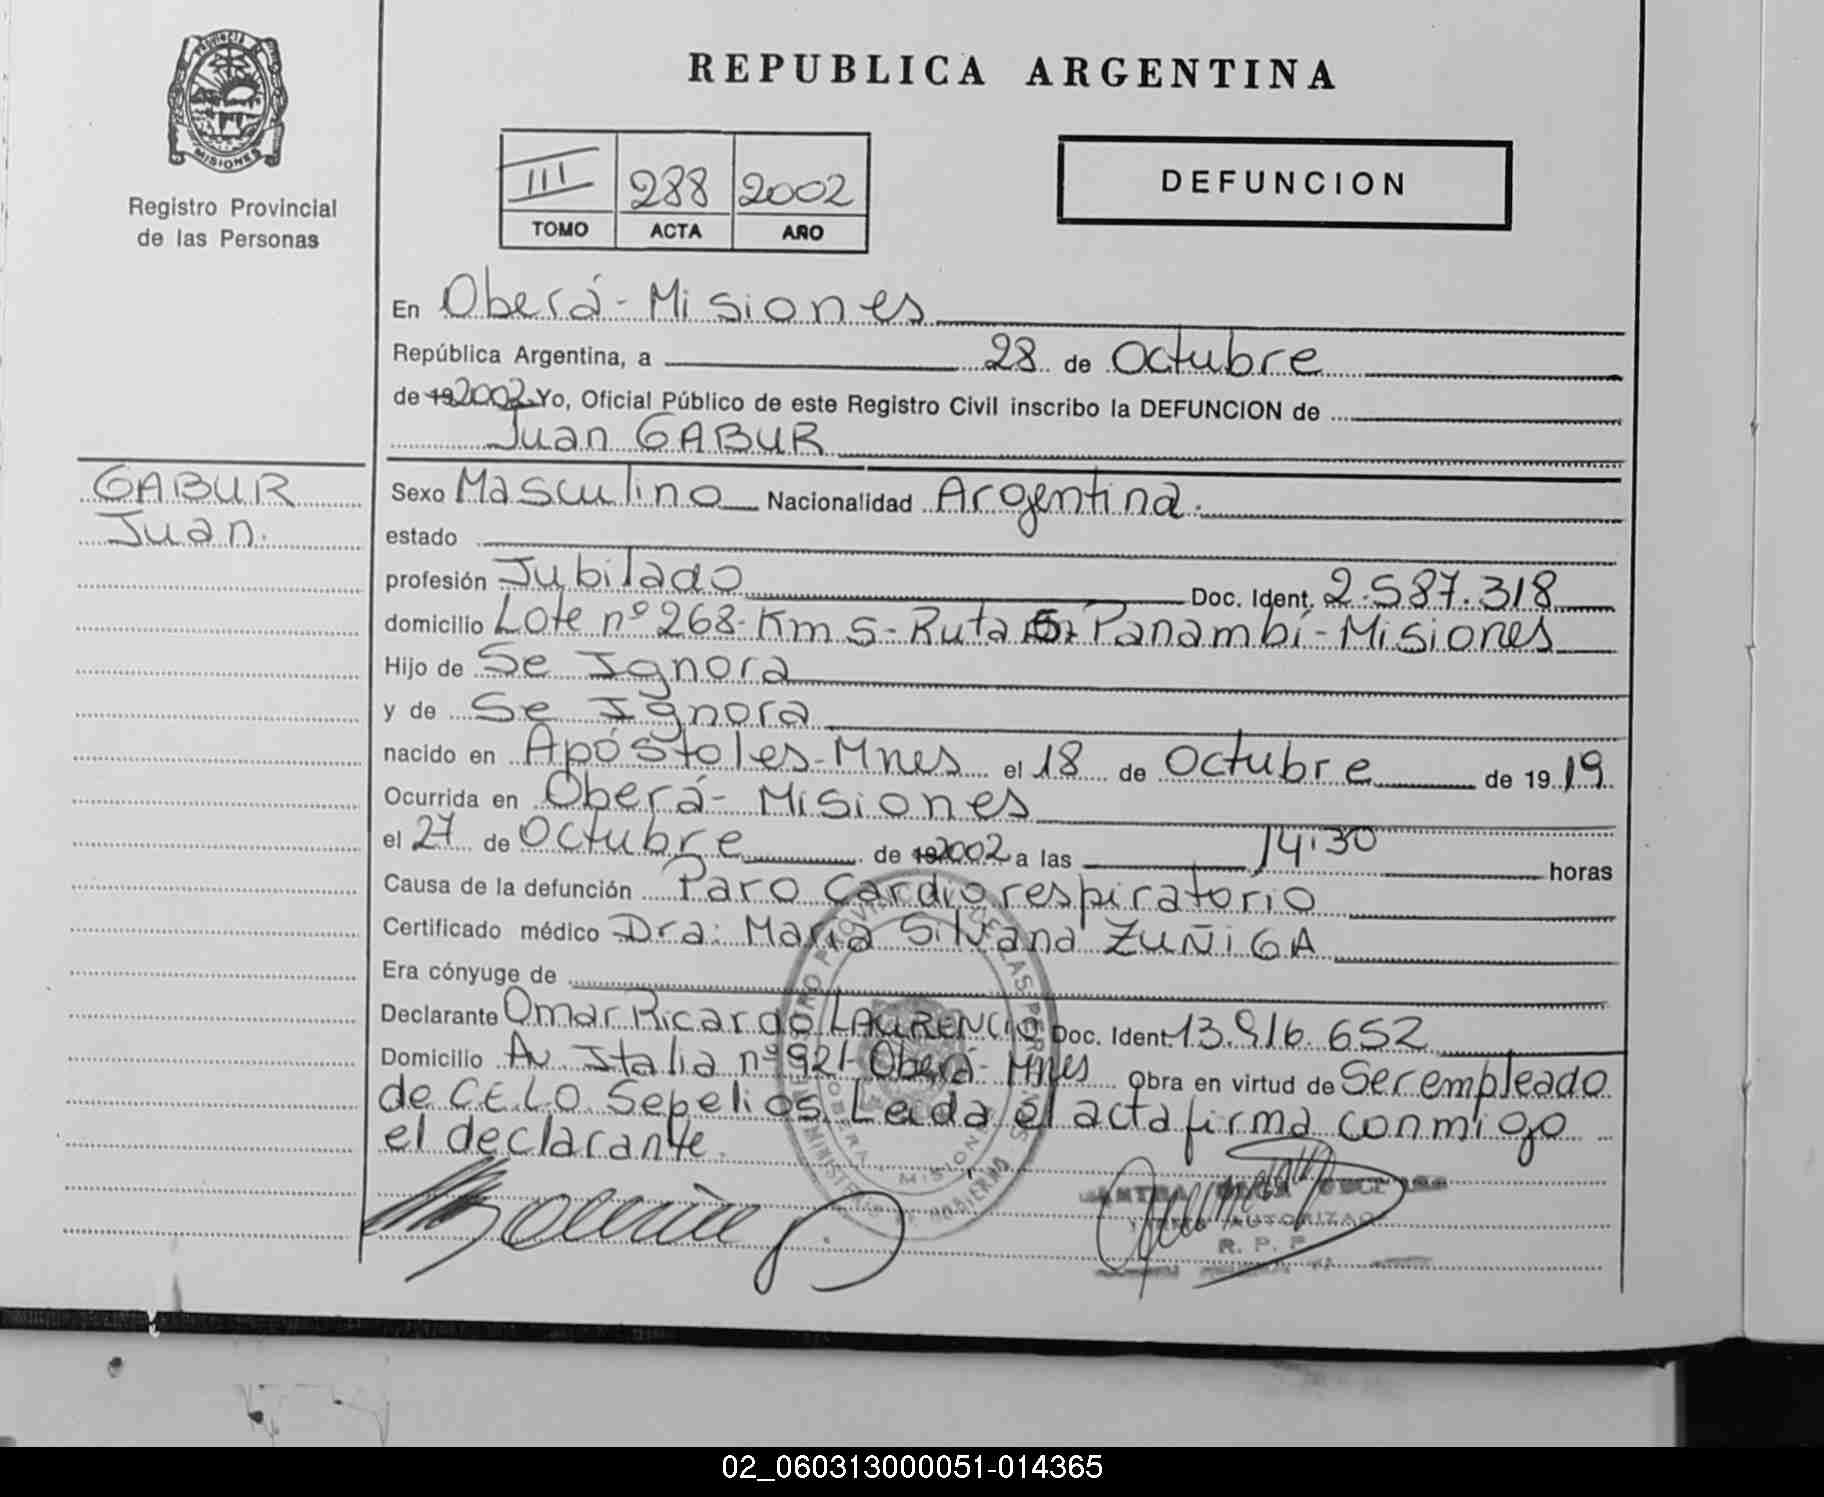 PROVINCIA DE
MISIONES
Registro Provincial
de las Personas
REPUBLICA ARGENTINA
III 288 2002
TOMO ACTA AÑO
DEFUNCION
En Oberá-Misiones
República Argentina, a 28 de Octubre
de 19 2002 Yo, Oficial Público de este Registro Civil inscribo la DEFUNCION de
Juan GABUR
GABUR
Juan.
Sexo Masculino Nacionalidad Argentina.
estado
profesión Jubilado Doc. Ident. 2.587.318
domicilio Lote nº 268-Km 5-Ruta 5, Panambí-Misiones
Hijo de Se Ignora
y de Se Ignora
nacido en Apóstoles-Mnes el 18 de Octubre de 19 19
Ocurrida en Oberá-Misiones
el 27 de Octubre de 19 2002 a las 14:30 horas
Causa de la defunción Paro Cardiorespiratorio
Certificado médico Dra: María Silvana ZUÑIGA
Era cónyuge de
Declarante Omar Ricardo LAURENCIO Doc. Ident. 13.916.652
Domicilio Av. Italia nº 921-Oberá-Mnes Obra en virtud de Ser empleado
de C.E.L.O Sepelios. Leida el acta firma conmigo
el declarante.
AUTORIZAD
R. P. P.
02_060313000051-014365